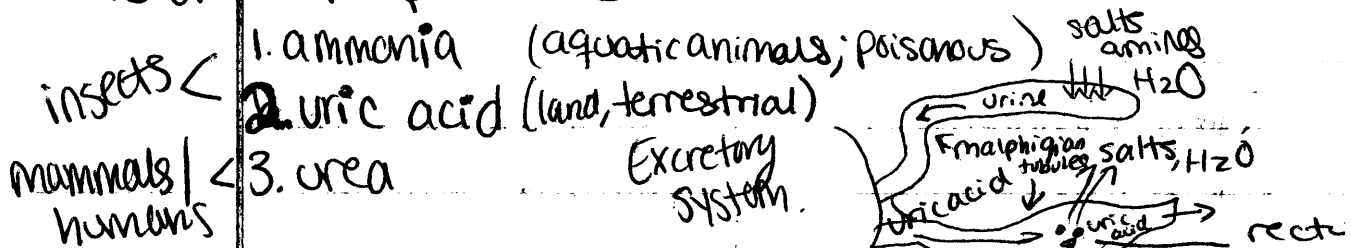 insects <
1. ammonia (aquatic animals; poisonous)
2. uric acid (land, terrestrial)
mammals/ < 3. urea
humans
Excretory
system.
salts
aminos
H2O
urine
malphigian
tubules
salts, H2O
uric acid
uric
acid